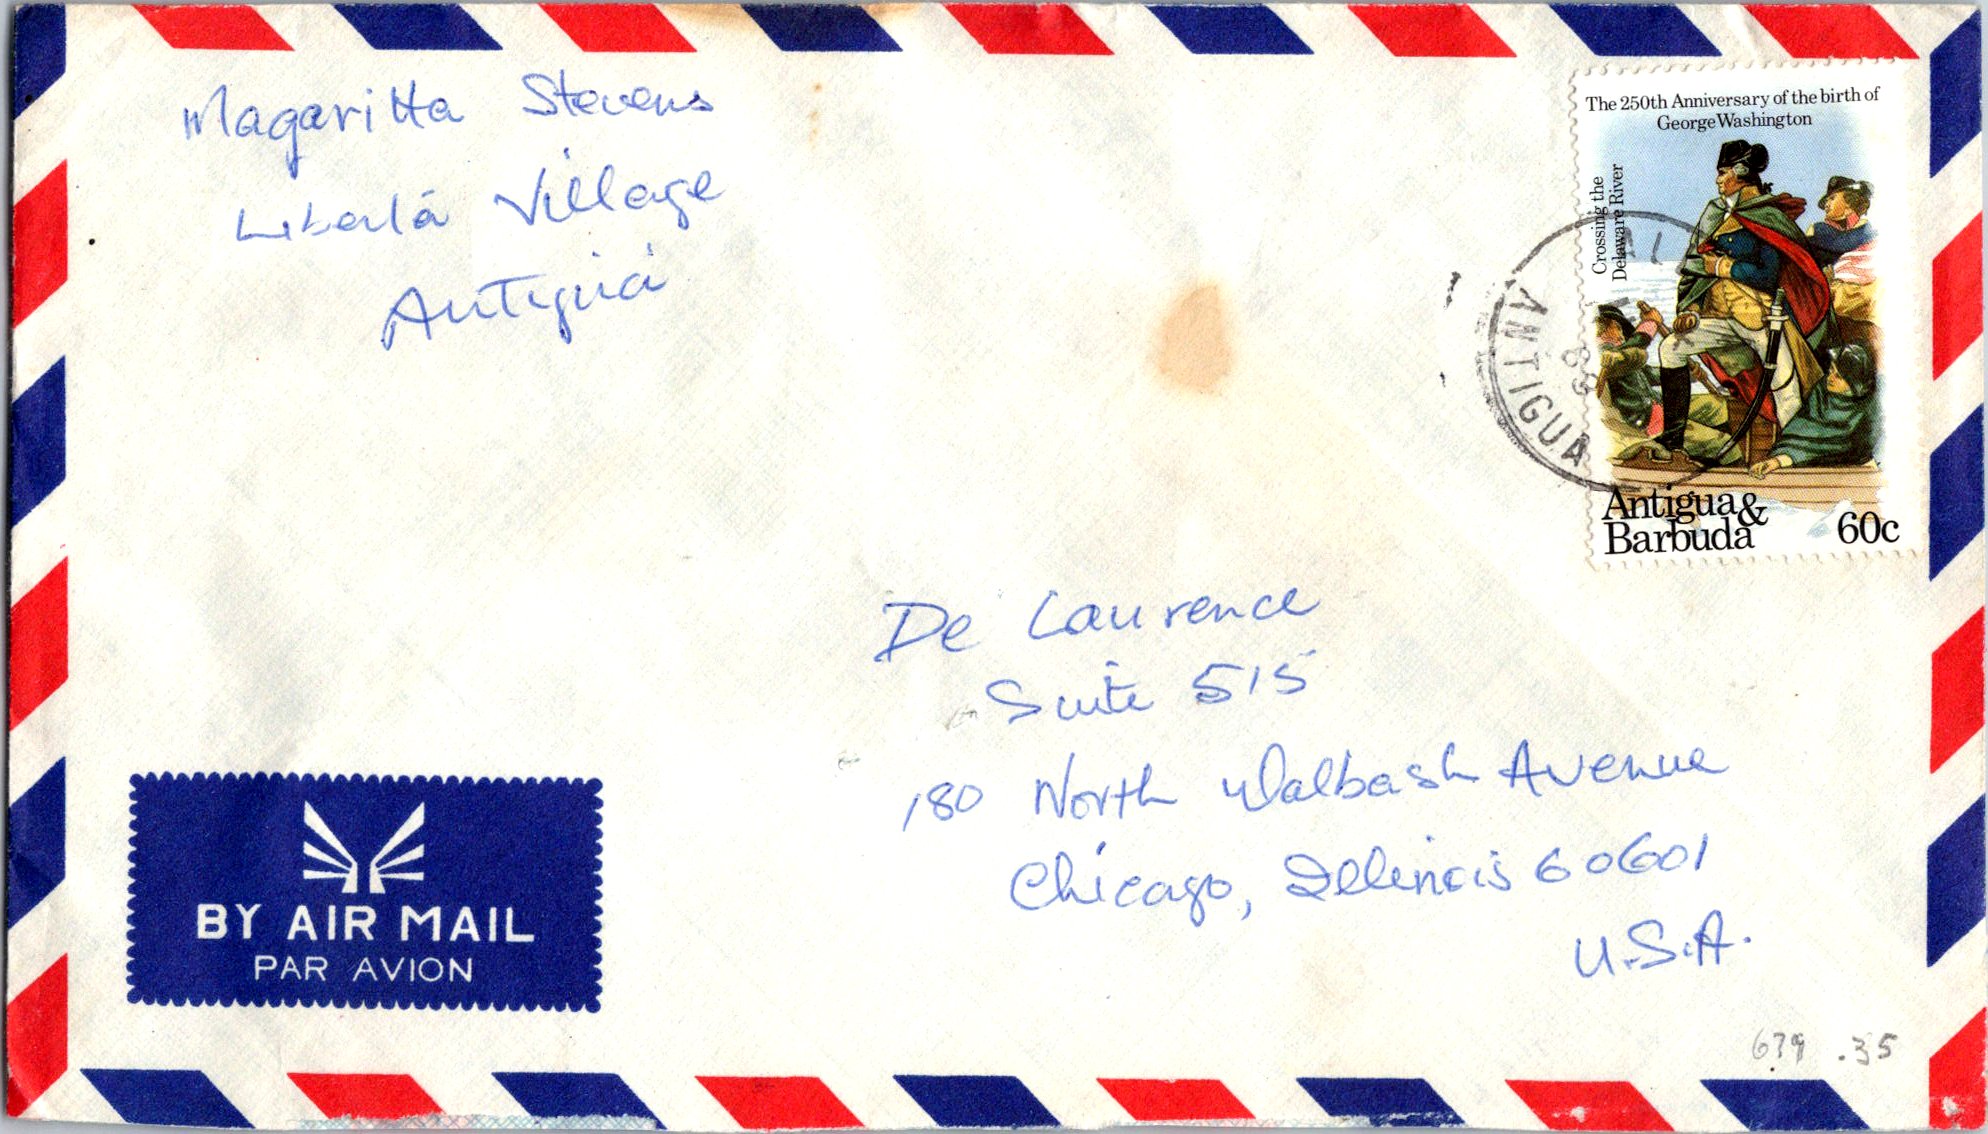 Magaritta Stevens
Liberta Village
Antigua
The 250th Anniversary of the birth of
George Washington
Crossing the
Delaware River
ANTIGUA
Antigua &
Barbuda
60c
De Laurence
Suite 515
180 North Walbash Avenue
Chicago, Illinois 60601
U.S.A.
BY AIR MAIL
PAR AVION
679 .35